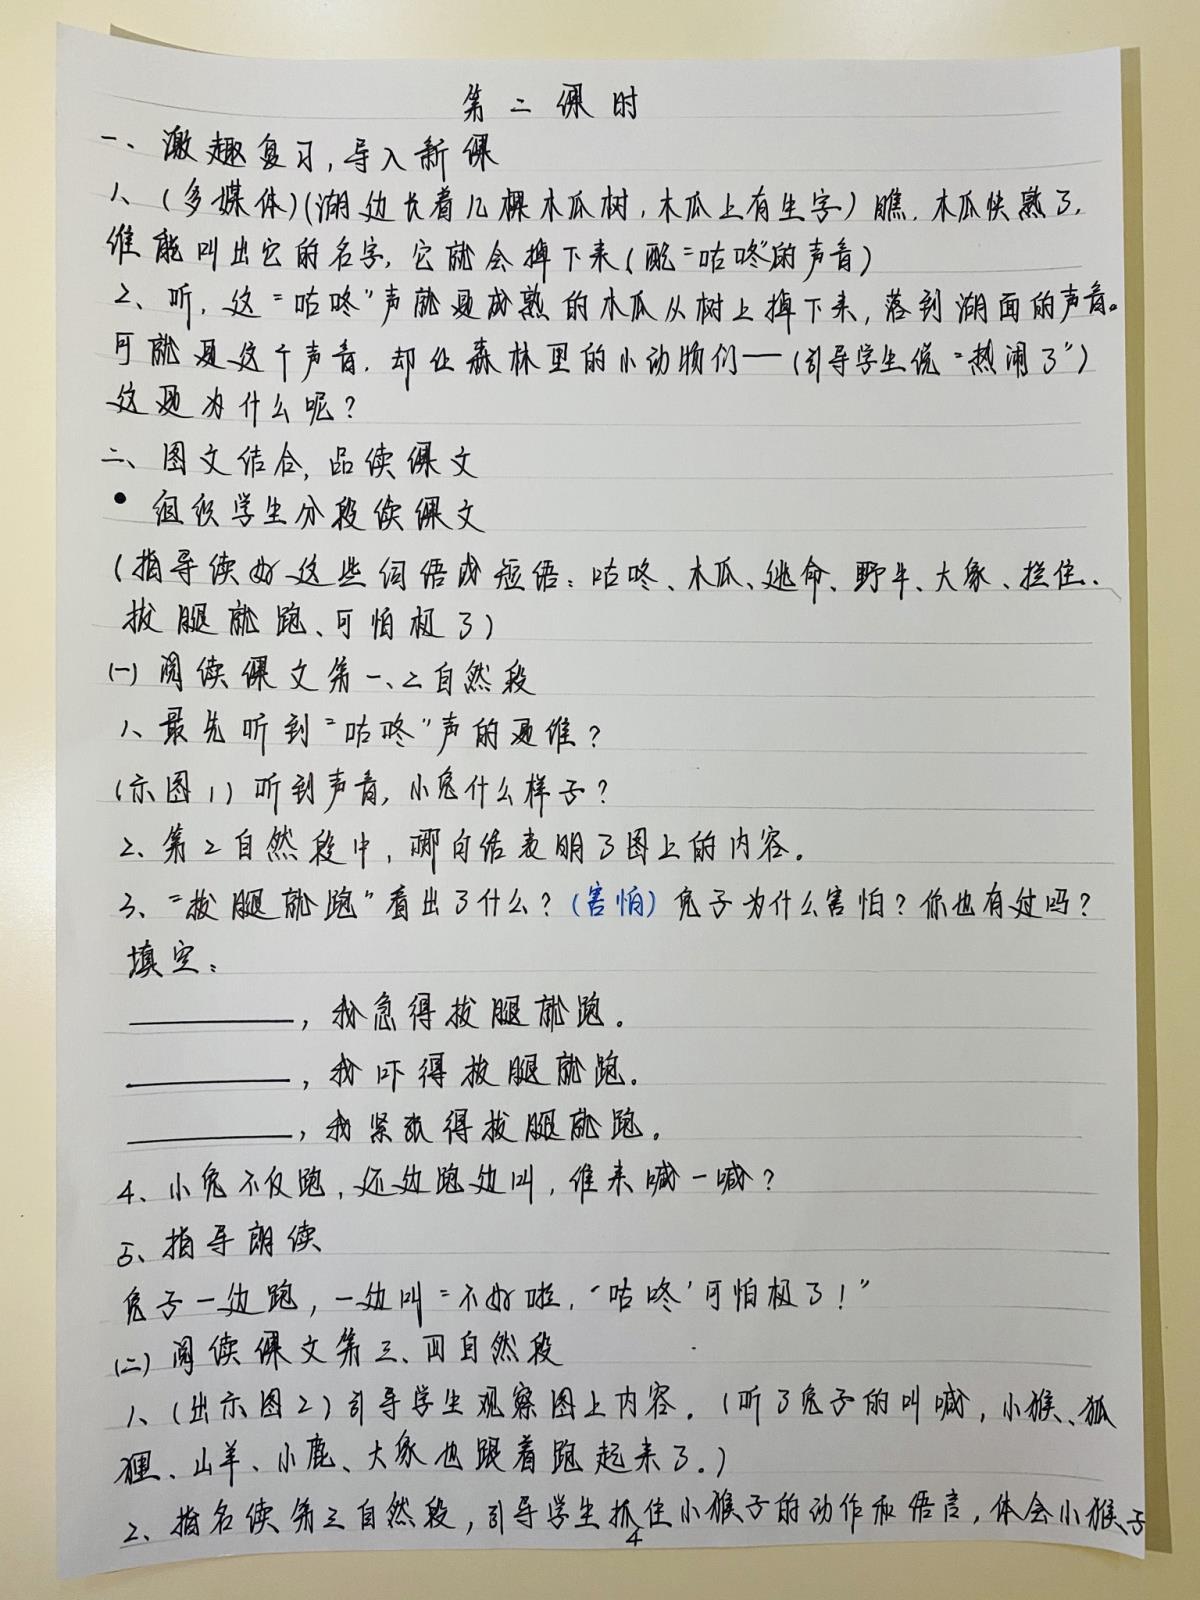 第二课时
一、激趣复习,导入新课
1、(多媒体)(湖边长着几棵木瓜树,木瓜上有生字)瞧,木瓜快熟了,
谁能叫出它的名字,它就会掉下来(配“咕咚”的声音)
2、听,这“咕咚”声就是成熟的木瓜从树上掉下来,落到湖面的声音。
可就是这个声音,却让森林里的小动物们——(引导学生说“热闹了”)
这是为什么呢?
二、图文结合,品读课文
• 组织学生分段读课文
(指导读好这些词语或短语:咕咚、木瓜、逃命、野牛、大象、拦住、
拔腿就跑、可怕极了)
(一)阅读课文第一、二自然段
1、最先听到“咕咚”声的是谁?
(示图1)听到声音,小兔什么样子?
2、第2自然段中,哪句话表明了图上的内容。
3、“拔腿就跑”看出了什么?(害怕)兔子为什么害怕?你也有过吗?
填空:
________,我急得拔腿就跑。
________,我吓得拔腿就跑。
________,我紧张得拔腿就跑。
4、小兔不仅跑,还边跑边叫,谁来喊一喊?
5、指导朗读
兔子一边跑,一边叫“不好啦,‘咕咚’可怕极了!”
(二)阅读课文第三、四自然段
1、(出示图2)引导学生观察图上内容。(听了兔子的叫喊,小猴、狐
狸、山羊、小鹿、大象也跟着跑起来了。)
2、指名读第三自然段,引导学生抓住小猴子的动作和语言,体会小猴子
4